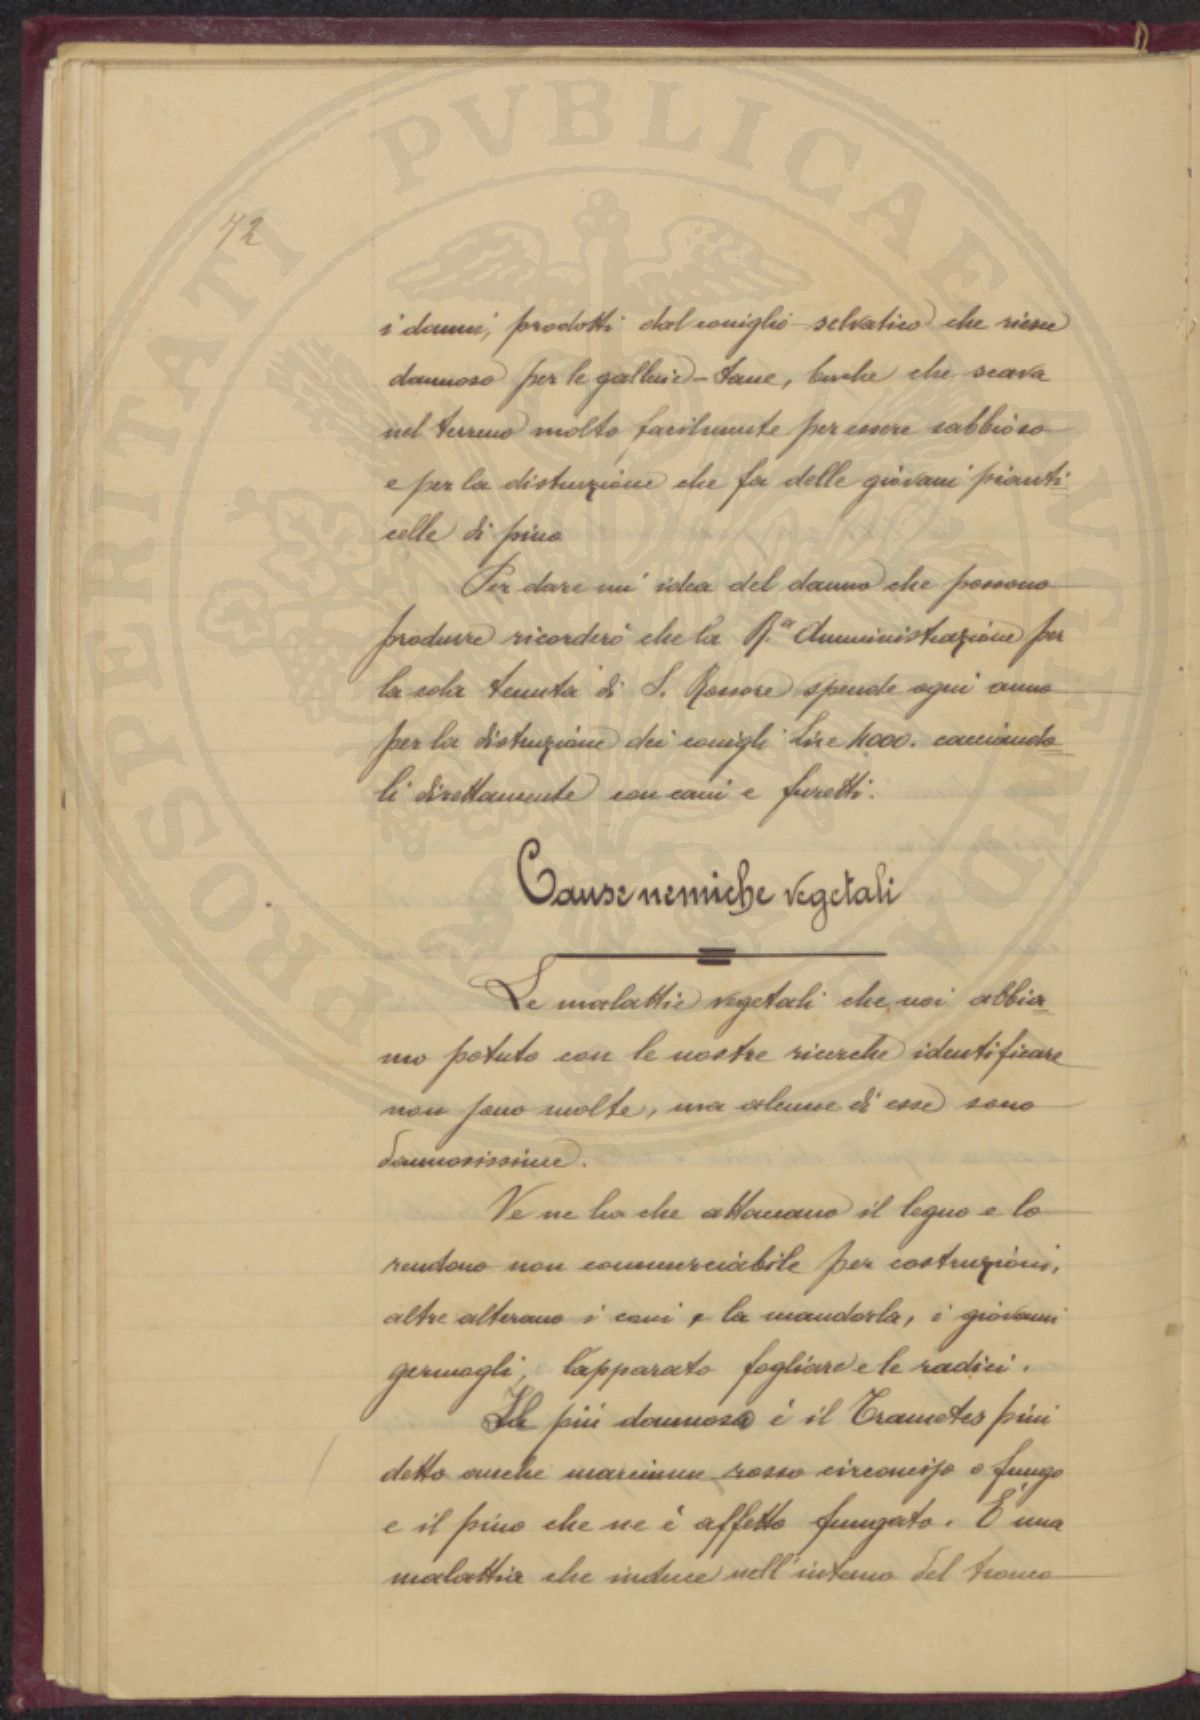 72
i danni, prodotti dal coniglio selvatico che riesce
dannoso per le gallerie-tane, buche che scava
nel terreno molto facilmente per essere sabbioso
e per la distruzione che fa delle giovani pianti-
celle di pino
Per dare un' idea del danno che possono
produrre ricorderò che la R.ª Amministrazione per
la sola tenuta di S. Rossore spende ogni anno
per la distruzione dei conigli Lire 4000. cacciando-
li direttamente con cani e furetti.
Cause nemiche vegetali
Le malattie vegetali che noi abbia-
mo potuto con le nostre ricerche identificare
non sono molte, ma alcune di esse sono
dannosissime.
Ve ne ha che attaccano il legno e lo
rendono non commerciabile per costruzioni,
altre alterano i coni e la mandorla, i giovani
germogli, l'apparato fogliare e le radici.
La più dannosa è il Trametes pini
detto anche marciume rosso circonciso o fungo
e il pino che ne è affetto fungato. È una
malattia che induce nell'interno del tronco
PROSPERITATI PVBLICAE AVGENDAE